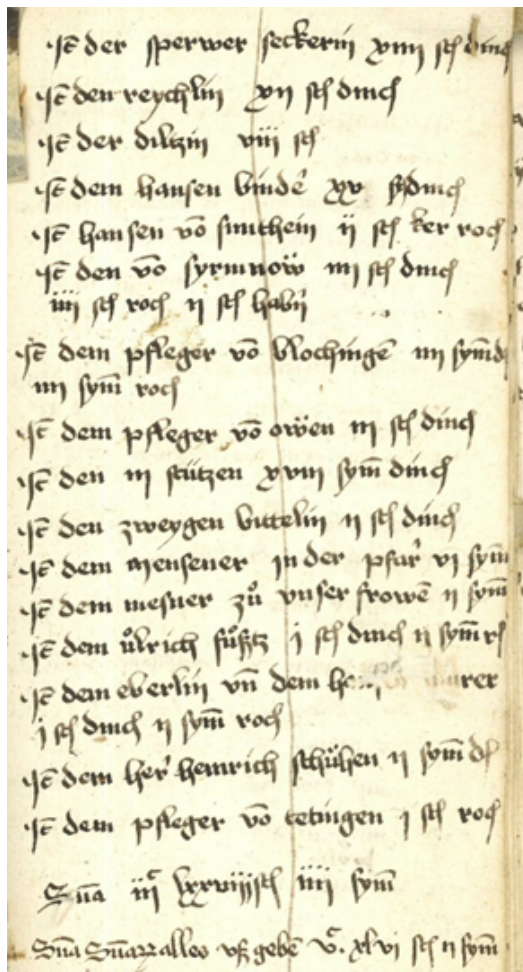 Itē der sperwer seckerin xviii sch dinch
Itē den reychlin xii sch dinch
Itē der diltzin viii sch
Itē dem hansen binder xx sch dinch
Itē hansen vō sinthein ii sch ker roch
Itē den vō syrmnöw iiii sch dinch
iiii sch roch ii sch habn
Itē dem pfleger vō blochingē iiii sym̄
iiii sym̄ roch
Itē dem pfleger vō owen iii sch dinch
Itē den iii stützen xviii sym̄ dinch
Itē den zweygen büttelin ii sch dinch
Itē dem mensener in der pfar vi sym̄
Itē dem mesner zů vnser frowē ii sym̄
Itē dem ůlrich j sch dinch ii sym̄ r
Itē dem eberlin vn̄ dem
j sch dinch ii sym̄ roch
Itē dem her heinrich schůhen ii sym̄ d
Itē dem pfleger vō tetingen j sch roch
Sūa iiiͨ lxxviii sch iiii sym
Sūa alles vß gebē vͨ xlvi sch ii sym